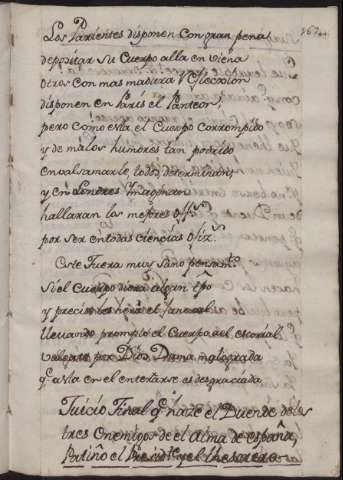 167
Los Parientes disponen con gran pena,
depositar su Cuerpo alla en Viena
otros con mas madura
disponen en Paris el Panteon;
pero como esta el Cuerpo corrompido
y de malos humores tan podrido
embalsamarle todos determinan,
y en Londres imaginan
hallaran los mejores
por ser en todas ciencias
Este fuera muy sano pensam.to
si el Cuerpo diera algun tpo
y precisos es hacer el funeral
llevando prompto el Cuerpo al escorial
valgate por Dios Dama malograda
q.e asta en el enterarse es desgraciada
Juicio Final q.e haze el Duende de los
tres Enemigos de el Alma de españa,
Patiño el Presid.te y el thesorero